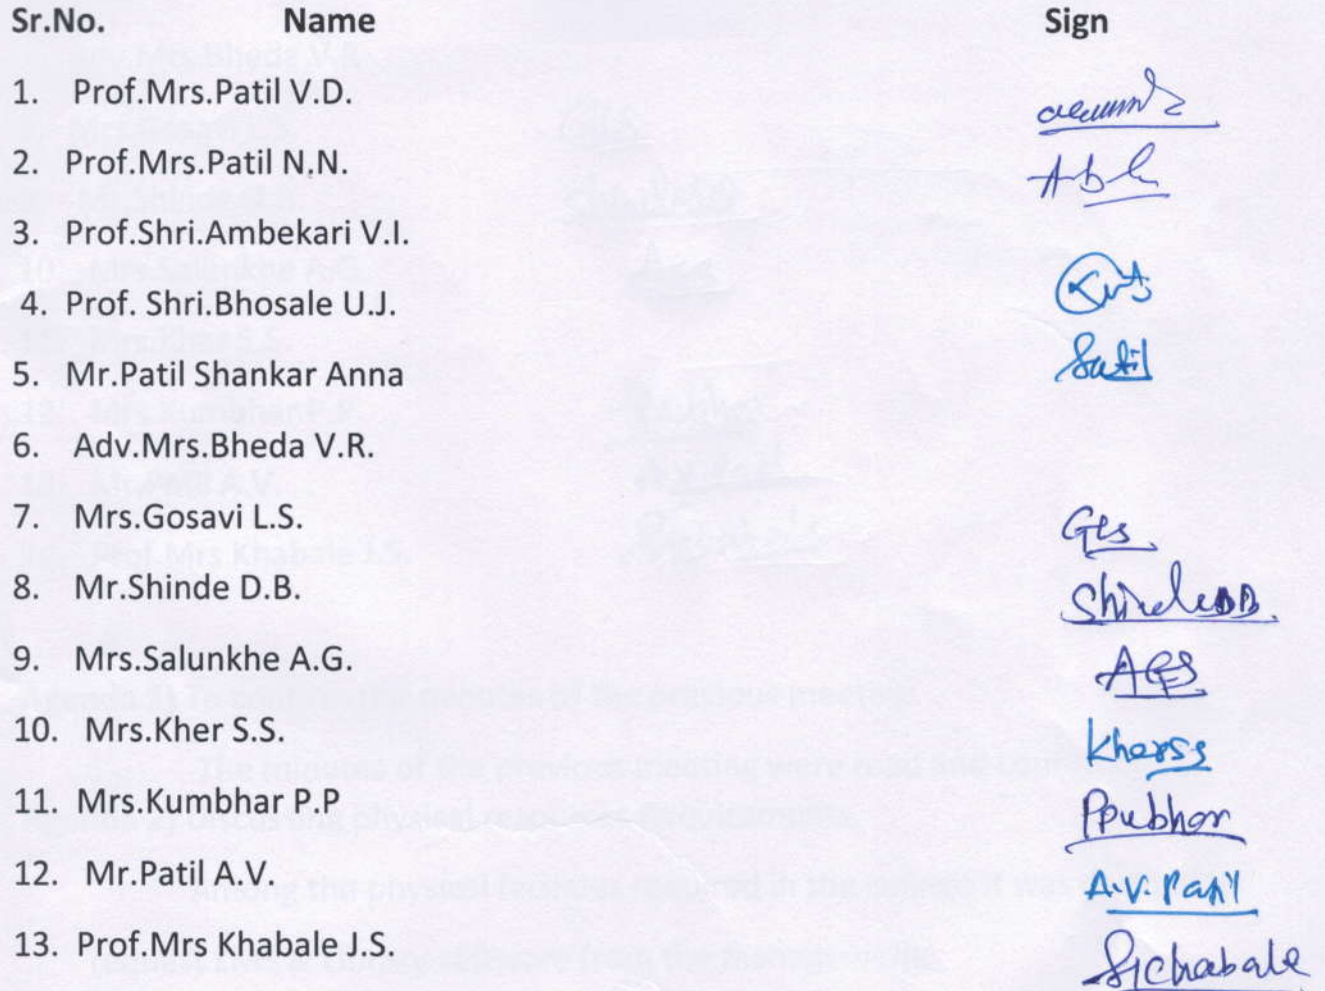 Sr.No. Name Sign
1. Prof.Mrs.Patil V.D.
2. Prof.Mrs.Patil N.N.
3. Prof.Shri.Ambekari V.I.
4. Prof. Shri.Bhosale U.J.
5. Mr.Patil Shankar Anna
6. Adv.Mrs.Bheda V.R.
7. Mrs.Gosavi L.S. GLS
8. Mr.Shinde D.B. ShindeDB.
9. Mrs.Salunkhe A.G. AGS
10. Mrs.Kher S.S. Kherss
11. Mrs.Kumbhar P.P
12. Mr.Patil A.V. A.V Patil
13. Prof.Mrs Khabale J.S.